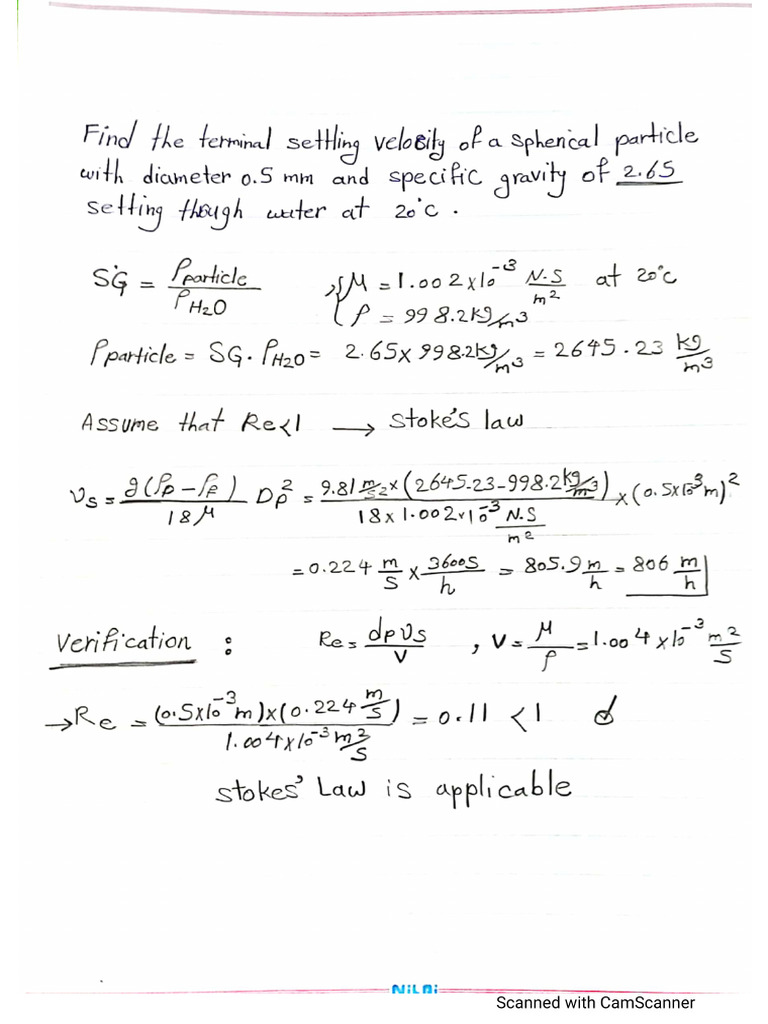 Find the terminal settling velocity of a spherical particle
with diameter 0.5 mm and specific gravity of 2.65
setting though water at 20°C.
SG = ρparticle / ρH2O
{ μ = 1.002×10⁻³ N.S/m² at 20°C
ρ = 998.2 kg/m³
ρparticle = SG · ρH2O = 2.65 × 998.2 kg/m³ = 2645.23 kg/m³
Assume that Re<1 → stoke's law
υs = g(ρp − ρf) / 18μ Dp² = 9.81 m/s² × (2645.23 - 998.2 kg/m³) / 18 × 1.002×10⁻³ N.S/m² × (0.5×10⁻³ m)²
= 0.224 m/s × 3600s/h = 805.9 m/h = 806 m/h
Verification :
Re = dp υs / ν , ν = μ/ρ = 1.004 ×10⁻³ m²/s
→ Re = (0.5×10⁻³ m)×(0.224 m/s) / 1.004×10⁻³ m²/s = 0.11 < 1
stokes' Law is applicable
NiLBi
Scanned with CamScanner